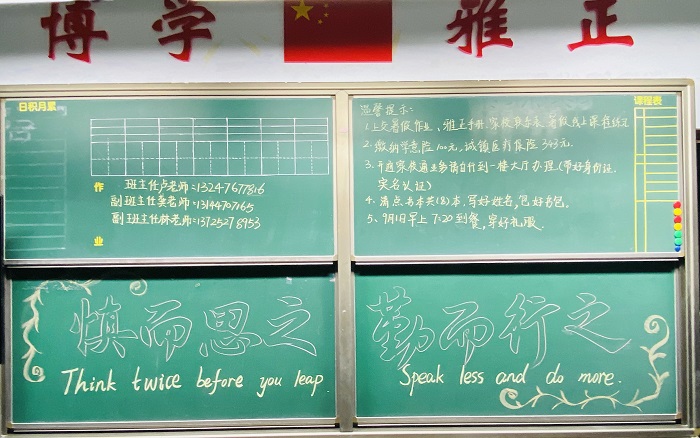 博学 雅正
日积月累
作
业
班主任卢老师:13247677816
副班主任龚老师:13144707165
副班主任林老师:13725278953
温馨提示:
课程表
1.上交暑假作业、雅正手册、家校
2.缴纳学意险100元,诚镇医疗保险343元.
3.开通家校通业务请自行到一楼大厅办理(带好身份证.
实名认证)
4.清点书本共(8)本,写好姓名,包好书包.
5、9月1日早上7:20到餐,穿好礼服.
慎而思之
Think twice before you leap.
勤而行之
Speak less and do more.